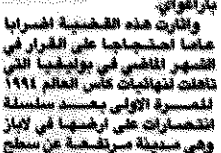 باراغواي
واثارت هذه القضية اضرابا
عاما احتجاجا على القرار في
الشهر الماضي في بوليفيا التي
تاهلت لنهائيات كأس العالم ١٩٩٤
للمرة الاولى بعد سلسلة
انتصارات على ارضها في لاباز
وهي مدينة مرتفعة عن سطح